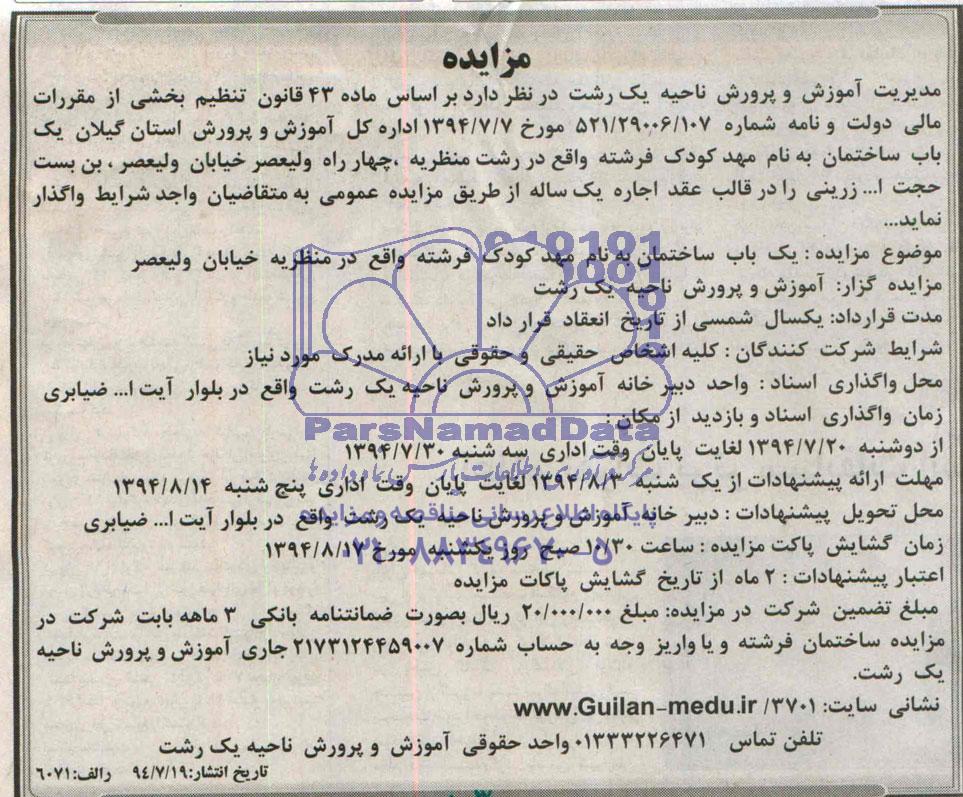 مزایده
مدیریت آموزش و پرورش ناحیه یک رشت در نظر دارد بر اساس ماده ۴۳ قانون تنظیم بخشی از مقررات
مالی دولت و نامه شماره ۵۲۱/۲۹۰۰۶/۱۰۷ مورخ ۱۳۹۴/۷/۷ اداره کل آموزش و پرورش استان گیلان یک
باب ساختمان به نام مهد کودک فرشته واقع در رشت منظریه ،چهار راه ولیعصر خیابان ولیعصر ، بن بست
حجت ا... زرینی را در قالب عقد اجاره یک ساله از طریق مزایده عمومی به متقاضیان واجد شرایط واگذار
نماید...
موضوع مزایده : یک باب ساختمان به نام مهد کودک فرشته واقع در منظریه خیابان ولیعصر
مزایده گزار: آموزش و پرورش ناحیه یک رشت
مدت قرارداد: یکسال شمسی از تاریخ انعقاد قرار داد
شرایط شرکت کنندگان : کلیه اشخاص حقیقی و حقوقی با ارائه مدرک مورد نیاز
محل واگذاری اسناد : واحد دبیر خانه آموزش و پرورش ناحیه یک رشت واقع در بلوار آیت ا... ضیابری
زمان واگذاری اسناد و بازدید از مکان :
از دوشنبه ۱۳۹۴/۷/۲۰ لغایت پایان وقت اداری سه شنبه ۱۳۹۴/۷/۳۰
مهلت ارائه پیشنهادات از یک شنبه ۱۳۹۴/۸/۳ لغایت پایان وقت اداری پنج شنبه ۱۳۹۴/۸/۱۴
محل تحویل پیشنهادات : دبیر خانه آموزش و پرورش ناحیه یک رشت واقع در بلوار آیت ا... ضیابری
زمان گشایش پاکت مزایده : ساعت ۱۰/۳۰ صبح روز یکشنبه مورخ ۱۳۹۴/۸/۱۷
اعتبار پیشنهادات : ۲ ماه از تاریخ گشایش پاکات مزایده
مبلغ تضمین شرکت در مزایده: مبلغ ۲۰/۰۰۰/۰۰۰ ریال بصورت ضمانتنامه بانکی ۳ ماهه بابت شرکت در
مزایده ساختمان فرشته و یا واریز وجه به حساب شماره ۲۱۷۳۱۲۴۴۵۹۰۰۷ جاری آموزش و پرورش ناحیه
یک رشت.
نشانی سایت: www.Guilan-medu.ir /۳۷۰۱
تلفن تماس ۰۱۳۳۳۲۲۶۴۷۱ واحد حقوقی آموزش و پرورش ناحیه یک رشت
تاریخ انتشار:۹۴/۷/۱۹ رالف:۶۰۷۱
ParsNamadData
پایگاه اطلاع رسانی مناقصه و مزایده
۰۲۱-۸۸۳۴۹۶۷۰-۵